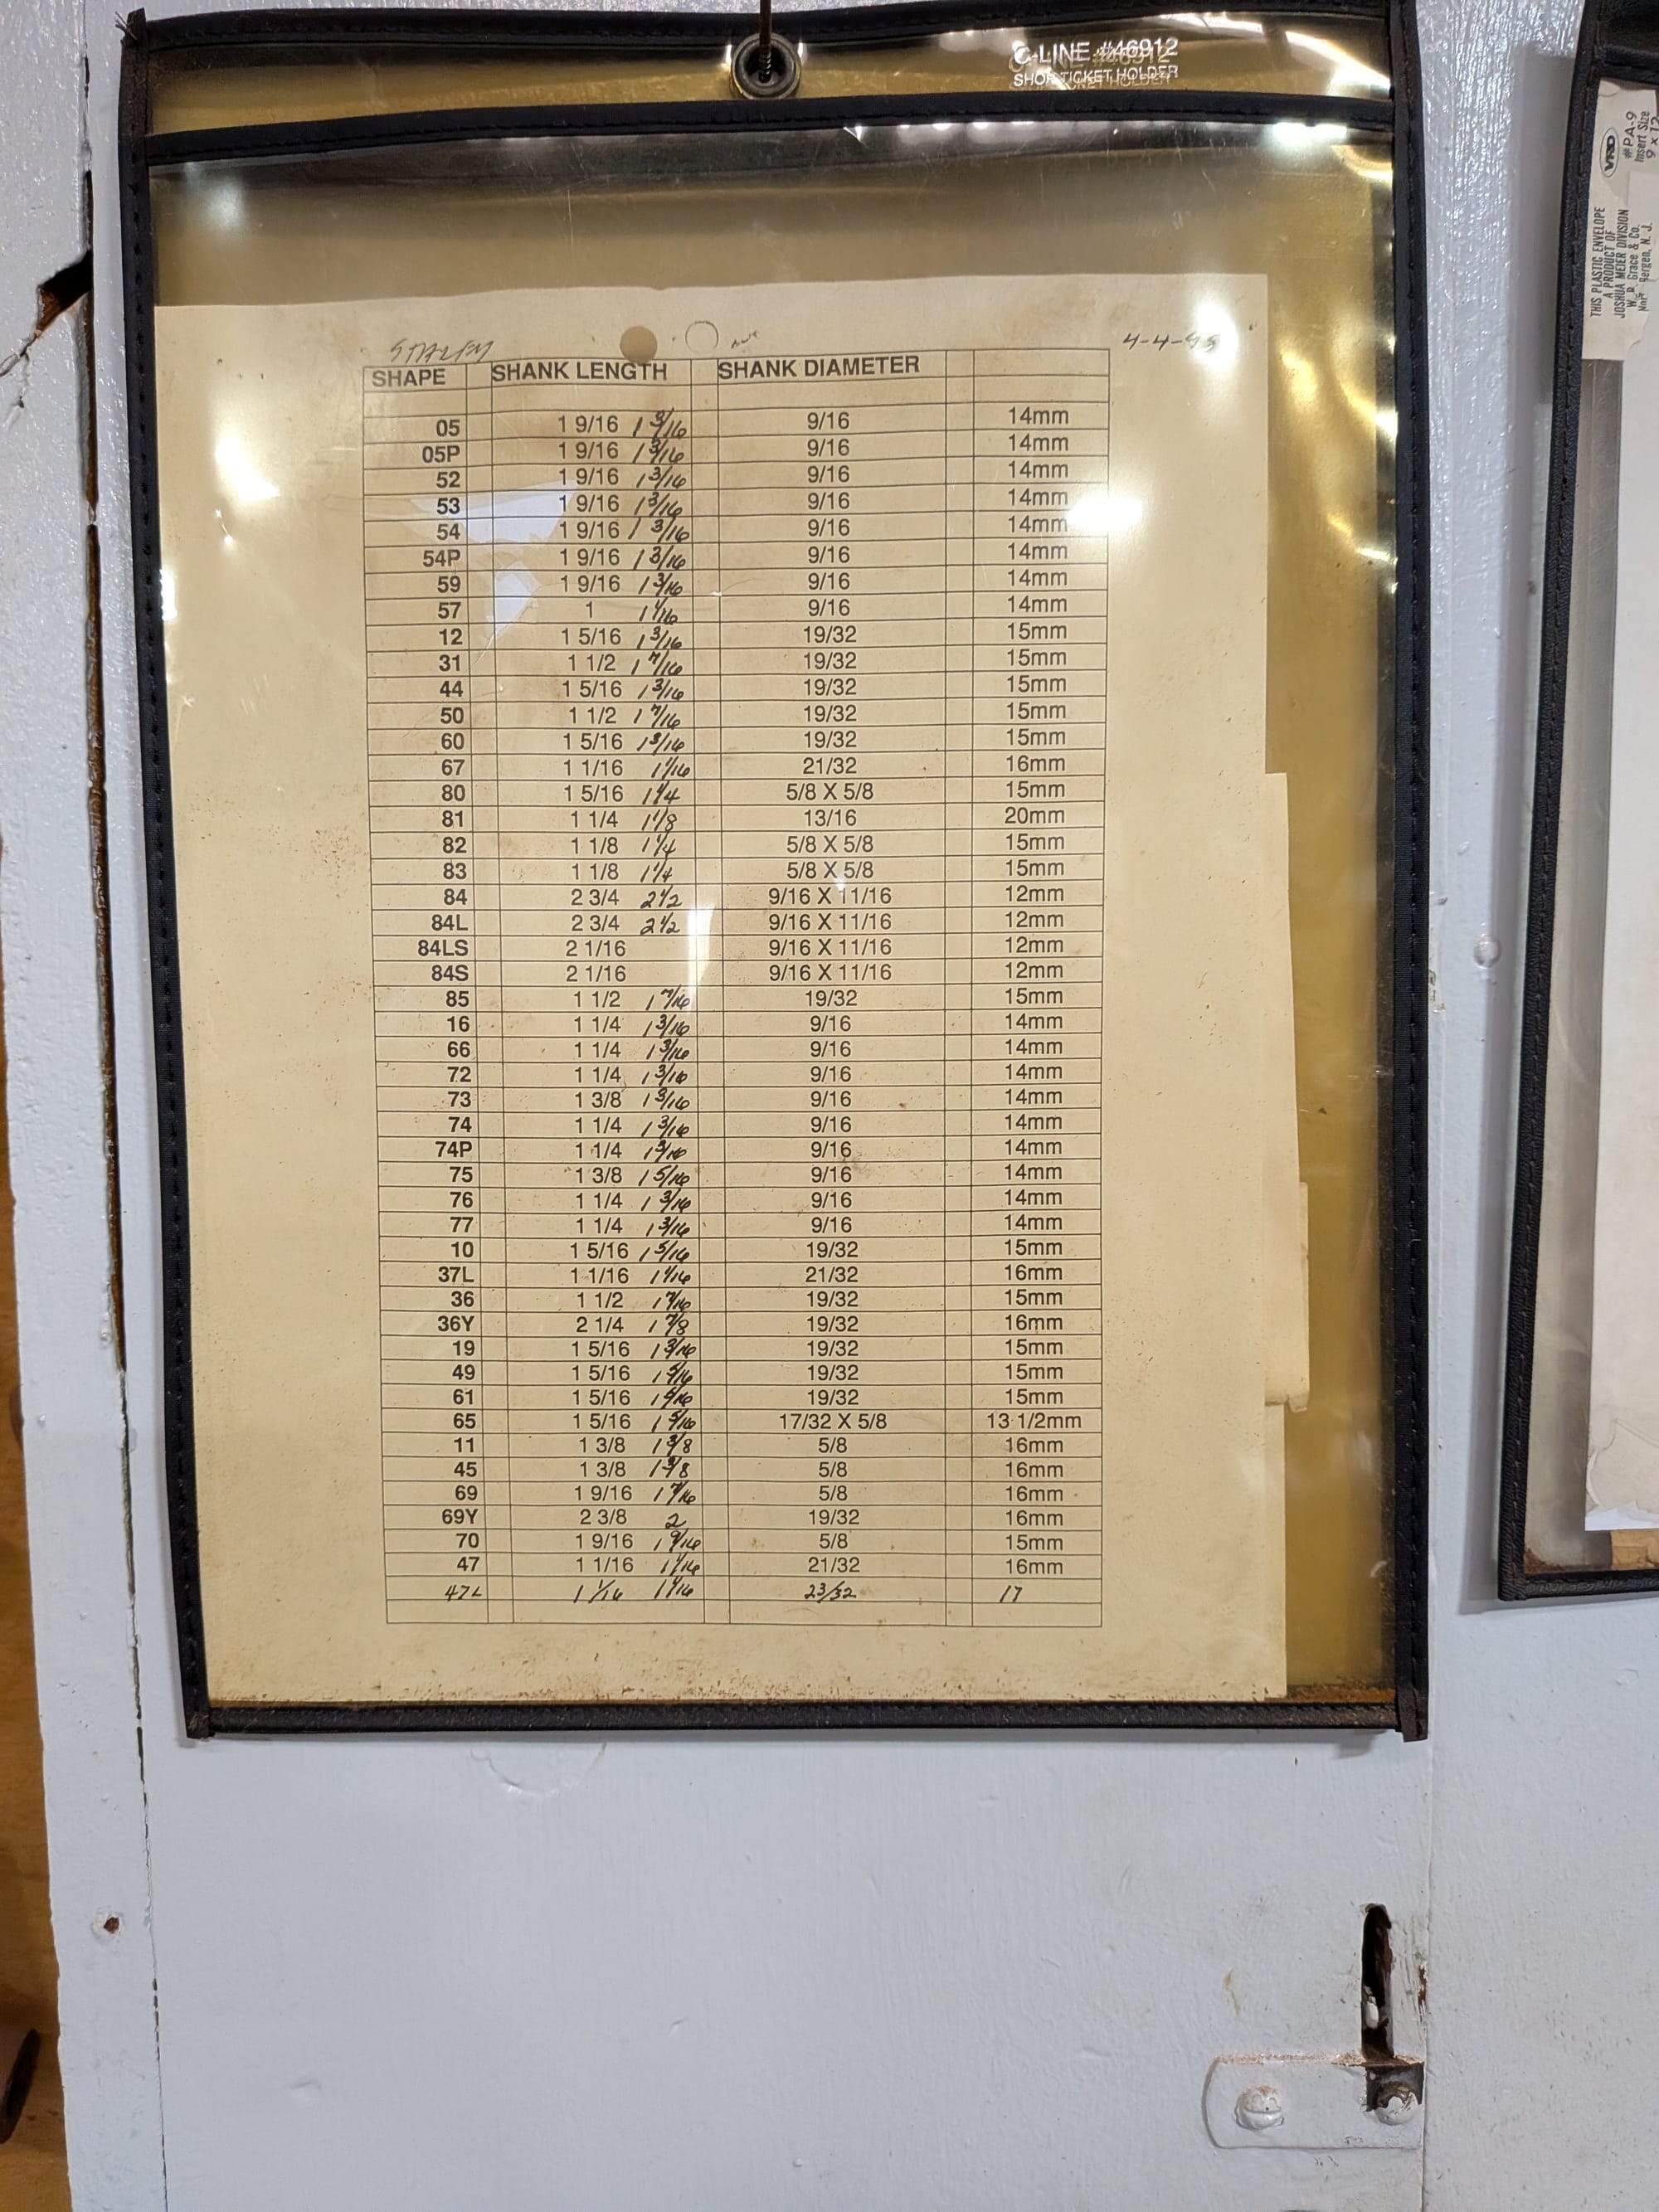 C-LINE #46912
SHOP TICKET HOLDER
4-4-
SHAPE SHANK LENGTH SHANK DIAMETER
05 1 9/16 1 3/16 9/16 14mm
05P 1 9/16 1 3/16 9/16 14mm
52 1 9/16 1 3/16 9/16 14mm
53 1 9/16 1 3/16 9/16 14mm
54 1 9/16 1 3/16 9/16 14mm
54P 1 9/16 1 3/16 9/16 14mm
59 1 9/16 1 3/16 9/16 14mm
57 1 1 1/16 9/16 14mm
12 1 5/16 1 3/16 19/32 15mm
31 1 1/2 1 7/16 19/32 15mm
44 1 5/16 1 3/16 19/32 15mm
50 1 1/2 1 7/16 19/32 15mm
60 1 5/16 1 3/16 19/32 15mm
67 1 1/16 1 1/16 21/32 16mm
80 1 5/16 1 1/4 5/8 X 5/8 15mm
81 1 1/4 1 1/8 13/16 20mm
82 1 1/8 1 1/4 5/8 X 5/8 15mm
83 1 1/8 1 1/4 5/8 X 5/8 15mm
84 2 3/4 2 1/2 9/16 X 11/16 12mm
84L 2 3/4 2 1/2 9/16 X 11/16 12mm
84LS 2 1/16 9/16 X 11/16 12mm
84S 2 1/16 9/16 X 11/16 12mm
85 1 1/2 1 7/16 19/32 15mm
16 1 1/4 1 3/16 9/16 14mm
66 1 1/4 1 3/16 9/16 14mm
72 1 1/4 1 3/16 9/16 14mm
73 1 3/8 1 3/16 9/16 14mm
74 1 1/4 1 3/16 9/16 14mm
74P 1 1/4 1 3/16 9/16 14mm
75 1 3/8 1 5/16 9/16 14mm
76 1 1/4 1 3/16 9/16 14mm
77 1 1/4 1 3/16 9/16 14mm
10 1 5/16 1 5/16 19/32 15mm
37L 1 1/16 1 1/16 21/32 16mm
36 1 1/2 1 7/16 19/32 15mm
36Y 2 1/4 1 7/8 19/32 16mm
19 1 5/16 1 3/16 19/32 15mm
49 1 5/16 1 5/16 19/32 15mm
61 1 5/16 1 5/16 19/32 15mm
65 1 5/16 1 5/16 17/32 X 5/8 13 1/2mm
11 1 3/8 1 3/8 5/8 16mm
45 1 3/8 1 3/8 5/8 16mm
69 1 9/16 1 7/16 5/8 16mm
69Y 2 3/8 2 19/32 16mm
70 1 9/16 1 9/16 5/8 15mm
47 1 1/16 1 1/16 21/32 16mm
47L 1 1/16 1 1/16 23/32 17
VRD
#PA-9
Insert Size
9 x 12
THIS PLASTIC ENVELOPE
A PRODUCT OF
JOSHUA MEIER DIVISION
W. R. Grace & Co.
Bergen, N. J.